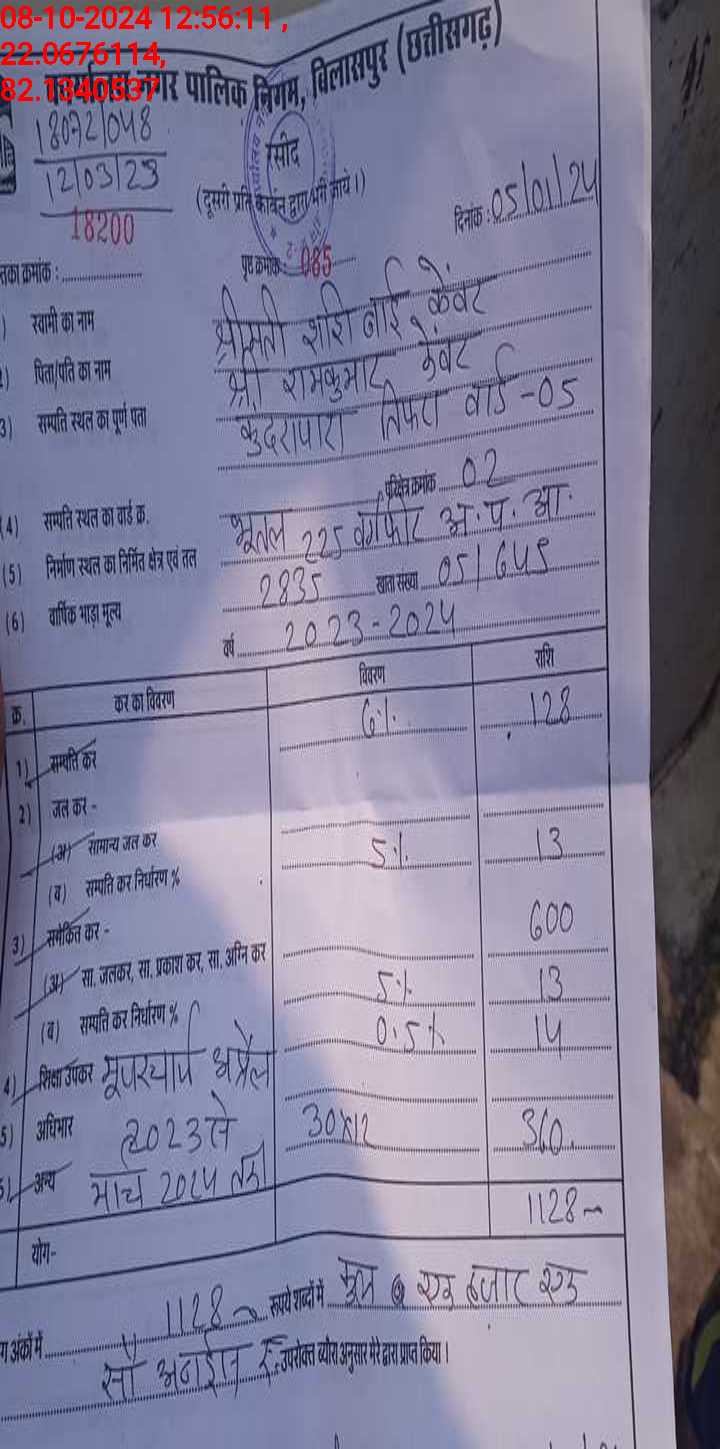 08-10-2024 12:56:11 ,
22.0676114,
82.1340537
कार्यालय नगर पालिक निगम, बिलासपुर (छत्तीसगढ़)
18072/048
12/03/23
18200
रसीद
(दूसरी प्रति कार्बन द्वारा भरी जाये।)
दिनांक : 05/01/24
क्रमांक :
पृष्ठ क्रमांक : 085
स्वामी का नाम श्रीमती शशि बाई केंवट
2) पिता/पति का नाम श्री रामकुमार केंवट
3) सम्पति स्थल का पूर्ण पता कुदरापारा तिफरा वार्ड -05
(4) सम्पति स्थल का वार्ड क्र. परिक्षेत्र क्रमांक 02
(5) निर्माण स्थल का निर्मित क्षेत्र एवं तल भूतल 225 वर्गफीट अ. प. आ.
(6) वार्षिक भाड़ा मूल्य 2835 खाता संख्या 05/645
वर्ष 2023-2024
क्र. कर का विवरण विवरण राशि
1) सम्पति कर 6% 128
2) जल कर -
(अ) सामान्य जल कर
(ब) सम्पति कर निर्धारण % 5% 13
3) समेकित कर - 600
(अ) सा. जलकर, सा. प्रकाश कर, सा. अग्नि कर
(ब) सम्पति कर निर्धारण % 5% 13
4) शिक्षा उपकर 0.5% 14
यूजरचार्ज अप्रैल
5) अधिभार 2023 से 30x12 360
अन्य मार्च 2024 तक
योग- 1128
अंकों में 1128 रूपये शब्दों में कुल एक हजार एक
सौ अठाईस रू. उपरोक्त ब्यौरा अनुसार मेरे द्वारा प्राप्त किया।